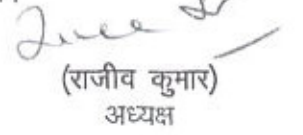 (राजीव कुमार)
अध्यक्ष